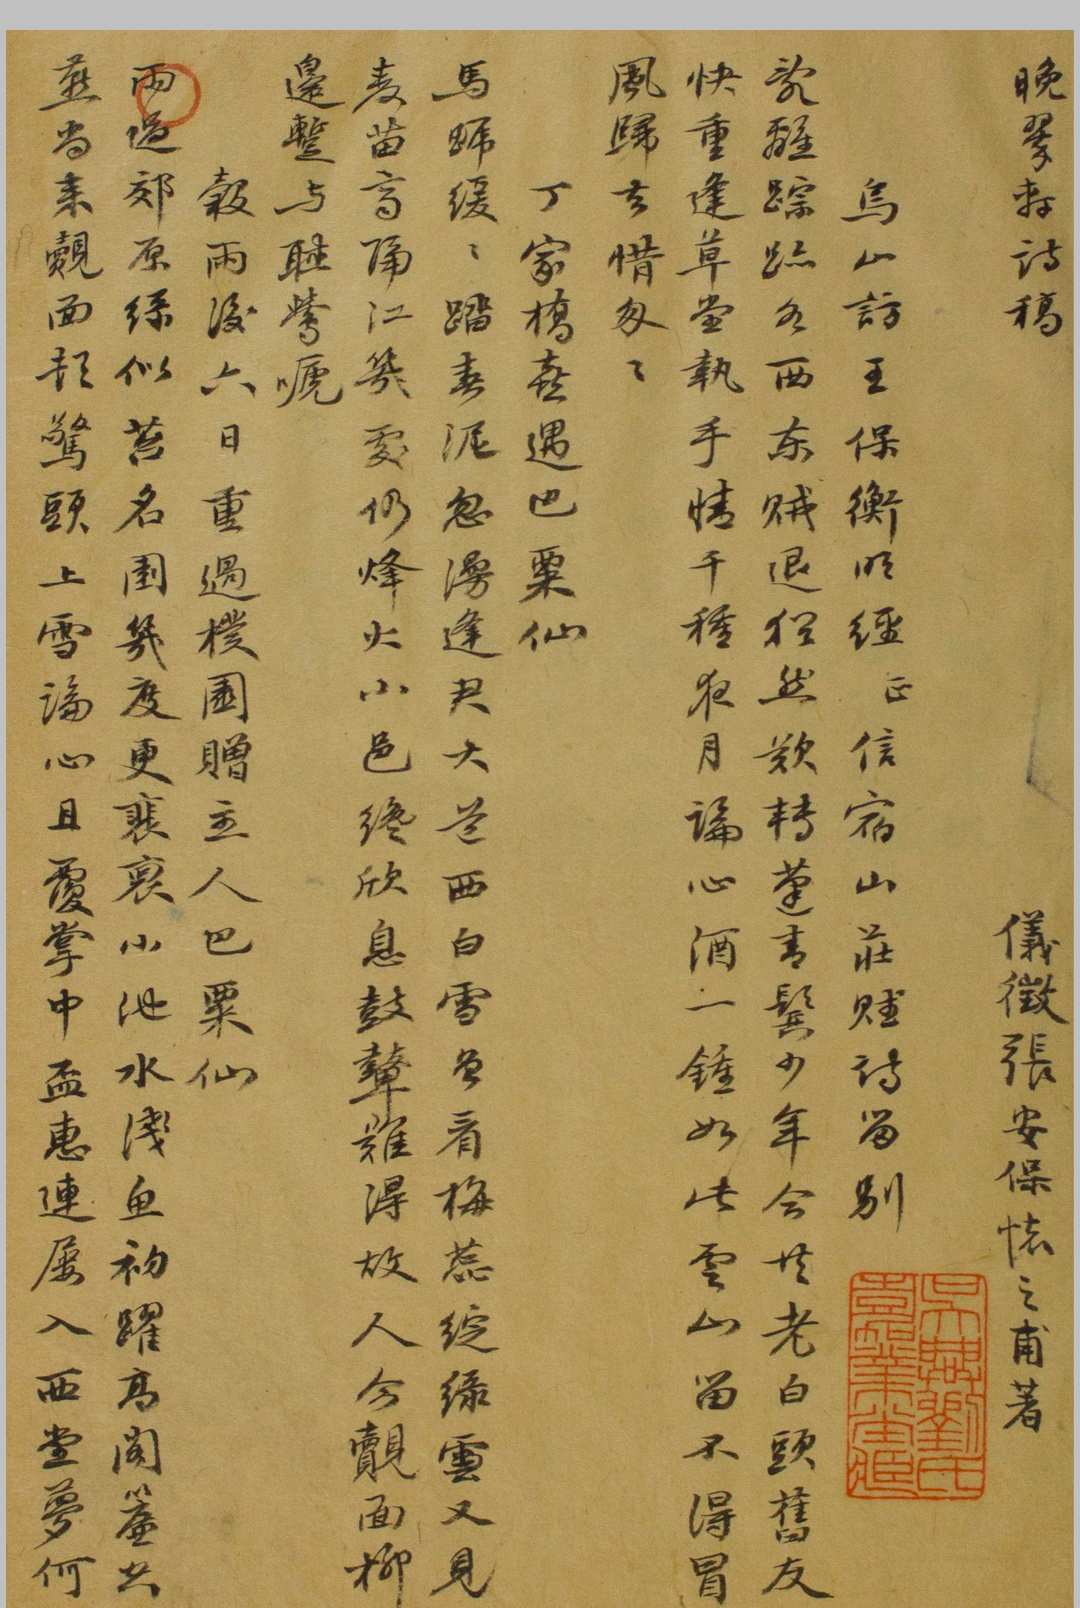 晚翠軒詩稿
儀徵張安保懷之甫著
烏山訪王保衡明經正信宿山莊賦詩留別
亂離踪跡各西東賊退猶然歎轉蓬青鬢少年今共老白頭舊友
快重逢草堂執手情千種夜月論心酒一鍾如此雲山留不得冒
風歸去惜匆〻
丁家橋喜遇巴粟仙
馬蹄緩〻踏春泥忽漫逢君大道西白雪曾看梅蕊綻綠雲又見
麦苗高隔江幾處仍烽火小邑纔欣息鼓鼙難得故人今覿面柳
邊蹔与聽鶯嗁
穀雨後六日重過樸園贈主人巴粟仙
雨過郊原綠似苔名園幾度更裴裒小池水淺魚初躍高閣簾
燕尚來覿面都驚頭上雪論心且覆掌中盃惠連屢入西堂夢何
吳興劉氏嘉業堂